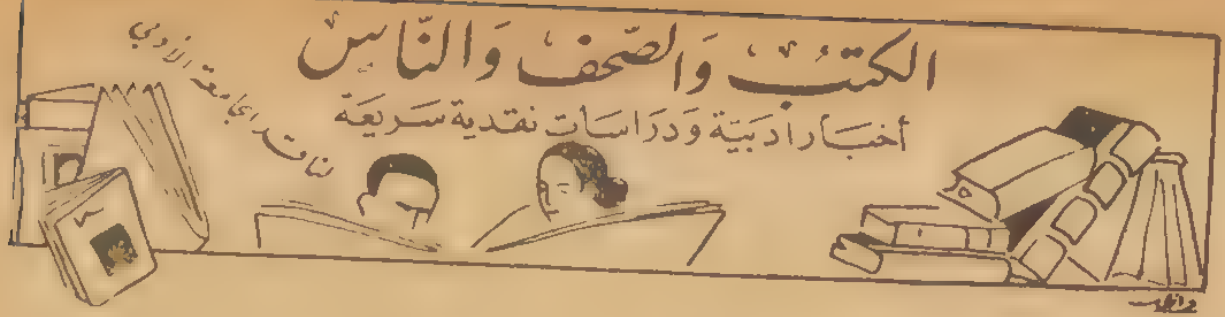 الكتب وَالصّحف وَالنّاس
أخبار ادبيّة وَدرَاسَات نقدية سَريعَة
لناقد الجامعة الأدبي